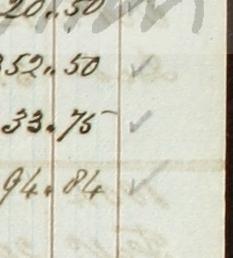 20.50
352.50
33.75
94.84